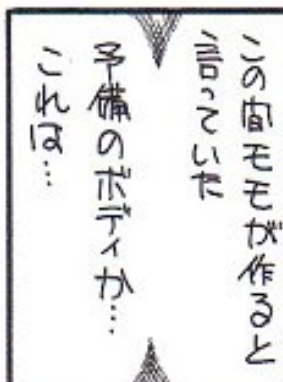 この間モモが作ると
言っていた
予備のボディか…
これは…